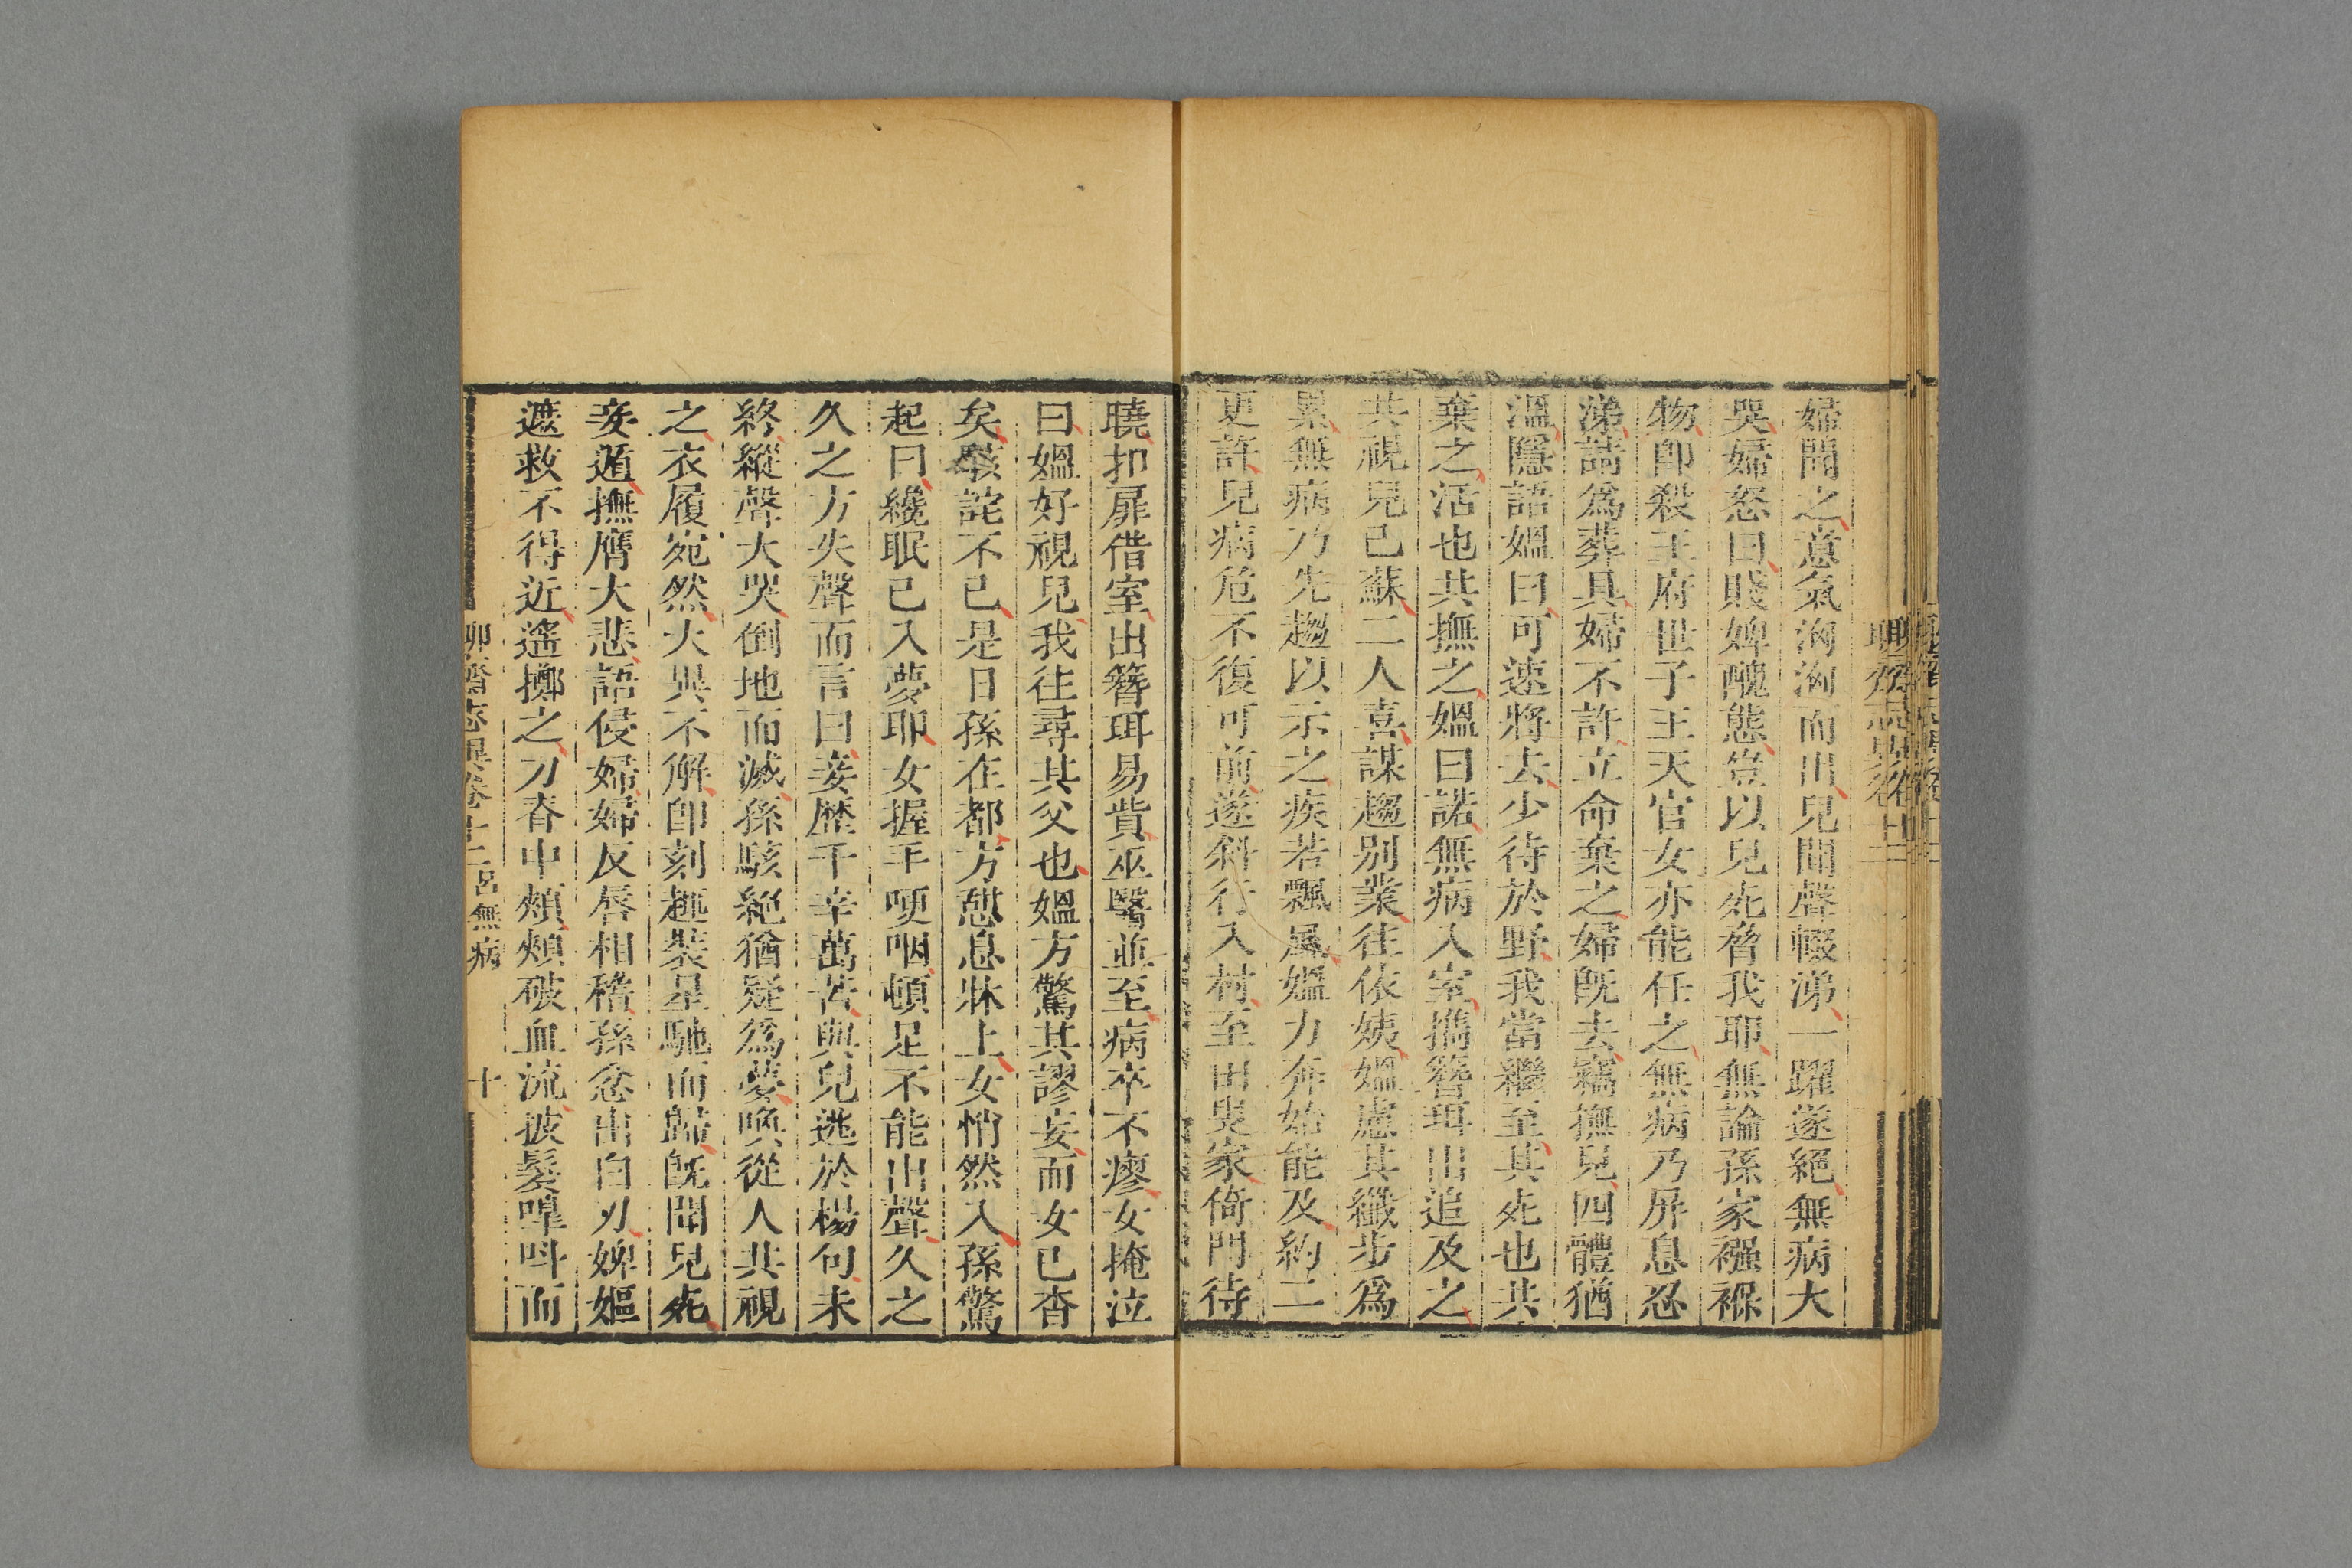 婦聞之意氣洶洶而出兒聞聲輟涕一躍遂絕無病大
哭婦怒曰賤婢醜態豈以兒死脅我耶無論孫家襁褓
物卽殺王府世子王天官女亦能任之無病乃屏息忍
涕請爲葬具婦不許立命棄之婦旣去竊撫兒四體猶
溫隱語媼曰可速將去少待於野我當繼至其死也共
棄之活也共撫之媼曰諾無病入室攜簪珥出追及之
共視兒已蘇二人喜謀趨別業往依姨媼慮其纖步爲
累無病乃先趨以示之疾若飄風媼力奔始能及約二
更許兒病危不復可前遂斜行入村至田叟家倚門待
曉扣扉借室出簪珥易貲巫醫並至病卒不瘳女掩泣
曰媼好視兒我往尋其父也媼方驚其謬妄而女已杳
矣駭詫不已是日孫在都方憩息牀上女悄然入孫驚
起曰纔眠已入夢耶女握手哽咽頓足不能出聲久之
久之方失聲而言曰妾歷千辛萬苦與兒逃於楊句未
終縱聲大哭倒地而滅孫駭絕猶疑爲夢喚從人共視
之衣履宛然大異不解卽刻趣裝星馳而歸旣聞兒死
妾遁撫膺大悲語侵婦婦反唇相稽孫忿出白刃婢嫗
遮救不得近遙擲之刀脊中頰頰破血流披髮嘷呌而
聊齋志異卷十二 呂無病 十